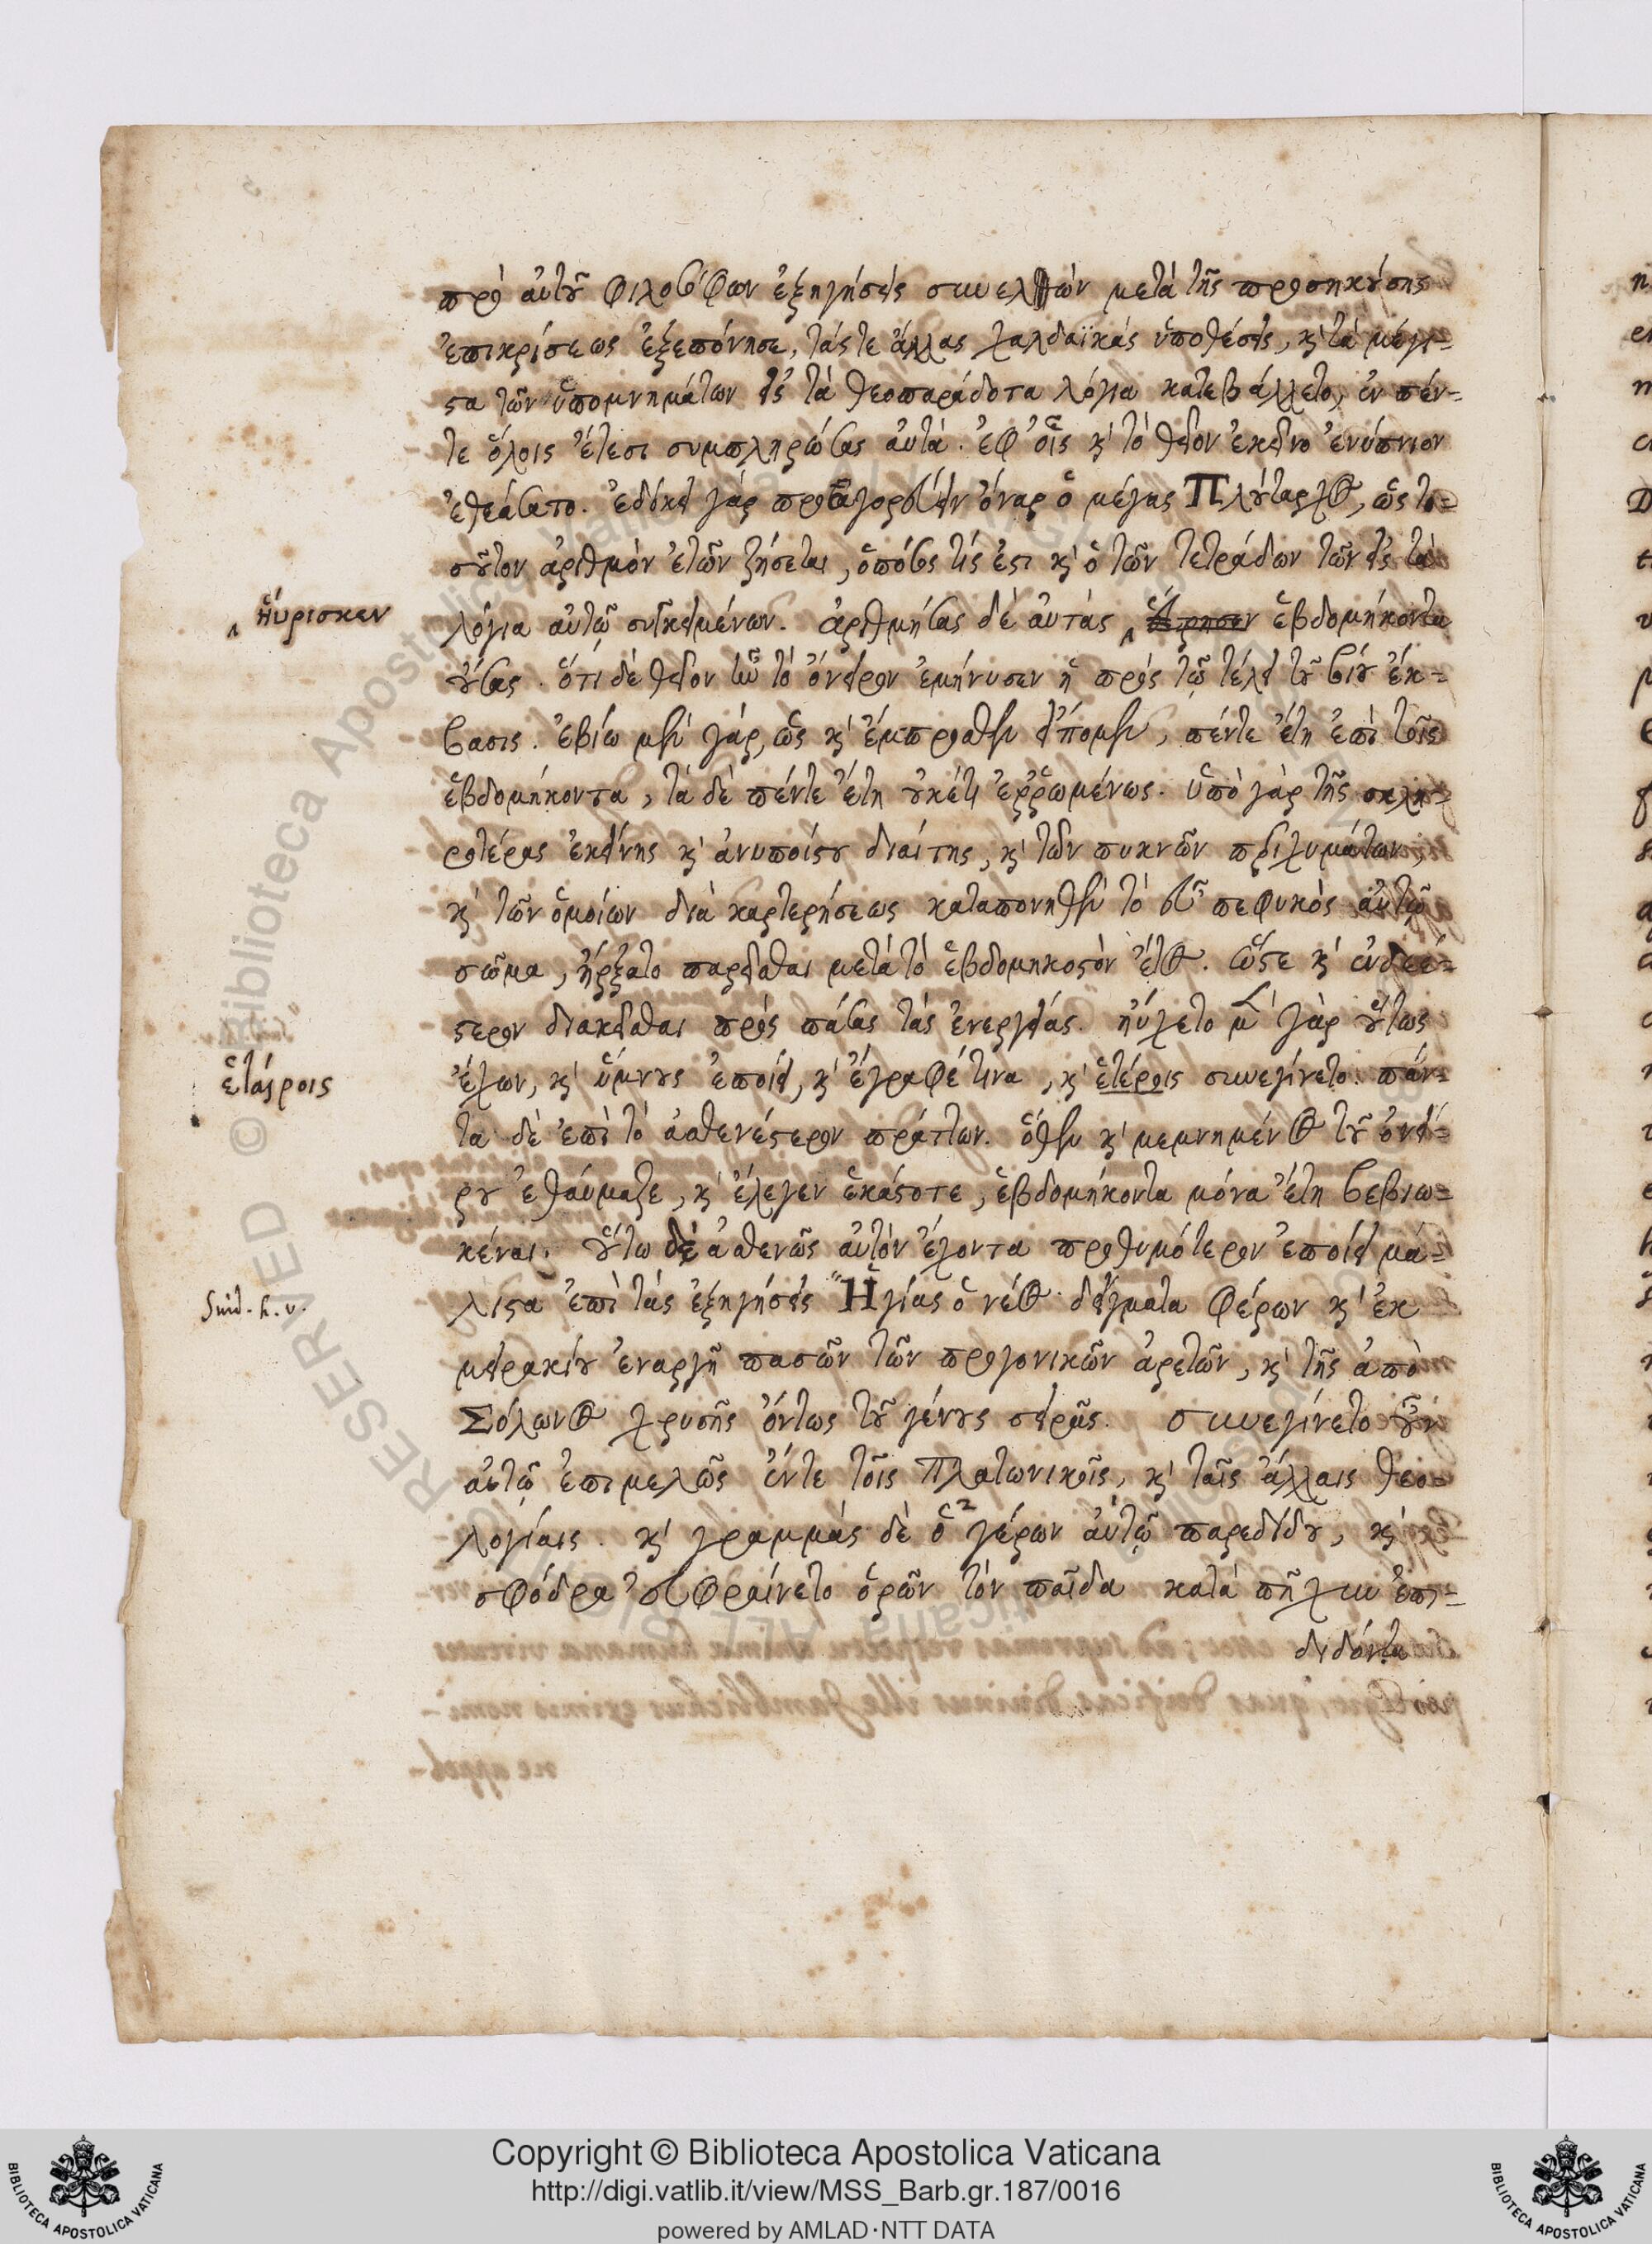 πρὸ αὐτοῦ φιλοσόφων ἐξηγήσεις συνελὼν μετὰ τῆς προσηκούσης
ἐπικρίσεως ἐξεπόνησε, τάς τε ἄλλας χαλδαϊκὰς ὑποθέσεις, κ̀ τὰ μέγι-
στα τῶν ὑπομνημάτων εἰς τὰ θεοπαράδοτα λόγια κατεβάλλετο, ἐν πέν-
τε ὅλοις ἔτεσι συμπληρώσας αὐτά. ἐφ' οἷς κ̀ τὸ θεῖον ἐκεῖνο ἐνύπνιον
ἐθεάσατο. ἐδόκει γὰρ προαγορεύειν ὄναρ ὁ μέγας Πλούταρχος, ὡς το-
σοῦτον ἀριθμὸν ἐτῶν ζήσεται, ὁπόσος τίς ἐστι κ̀ ὁ τῶν τετράδων τῶν εἰς τὰ
ηὕρισκεν
λόγια αὐτῷ συγκειμένων. ἀριθμήσας δὲ αὐτὰς ἑβδομήκοντα
οὔσας. ὅτι δὲ θεῖον ἦν τὸ ὄνειρον ἐμήνυσεν ἡ πρὸς τῷ τέλει τοῦ βίου ἔκ-
βασις. ἐβίω μὲν γὰρ, ὡς κ̀ ἔμπροσθεν εἴπομεν, πέντε ἔτη ἐπὶ τοῖς
ἑβδομήκοντα, τὰ δὲ πέντε ἔτη οὐκέτι ἐῤῥωμένως. ὑπὸ γὰρ τῆς σκλη-
ροτέρας ἐκείνης κ̀ ἀνυποίστου διαίτης, κ̀ τῶν πυκνῶν περιχυμάτων,
κ̀ τῶν ὁμοίων διὰ καρτερήσεως καταπονηθὲν τὸ εὖ πεφυκὸς αὐτῷ
σῶμα, ἤρξατο παρεῖσθαι μετὰ τὸ ἑβδομηκοστὸν ἔτος. ὥστε κ̀ ἐνδεέ-
στερον διακεῖσθαι πρὸς πάσας τὰς ἐνεργείας. ηὔχετο μὲν γὰρ οὕτως
ἑταίροις
ἔχων, κ̀ ὕμνους ἐποίει, κ̀ ἔγραφέ τινα, κ̀ ἑτέροις συνεγίνετο. πάν-
τα δὲ ἐπὶ τὸ ἀσθενέστερον πράττων. ὅθεν κ̀ μεμνημένος τοῦ ὀνεί-
ρου ἐθαύμαζε, κ̀ ἔλεγεν ἑκάστοτε, ἑβδομήκοντα μόνα ἔτη βεβιω-
κέναι. οὕτω δὲ ἀσθενῶς αὐτὸν ἔχοντα προθυμότερον ἐποίει μά-
Suid. h. v.
λιστα ἐπὶ τὰς ἐξηγήσεις Ἡγίας ὁ νέος. δείγματα φέρων κ̀ ἐκ
μειρακίου ἐναργῆ πασῶν τῶν προγονικῶν ἀρετῶν, κ̀ τῆς ἀπὸ
Σόλωνος χρυσῆς ὄντως τοῦ γένους σειρᾶς. συνεγίνετο οὖν
αὐτῷ ἐπιμελῶς ἔν τε τοῖς Πλατωνικοῖς, κ̀ ταῖς ἄλλαις θεο-
λογίαις. κ̀ γραμμὰς δὲ ὁ γέρων αὐτῷ παρεδίδου, κ̀
σφόδρα εὐφραίνετο ὁρῶν τὸν παῖδα κατὰ πῆχυν ἐπι-
διδόντα
Copyright © Biblioteca Apostolica Vaticana
http://digi.vatlib.it/view/MSS_Barb.gr.187/0016
powered by AMLAD·NTT DATA